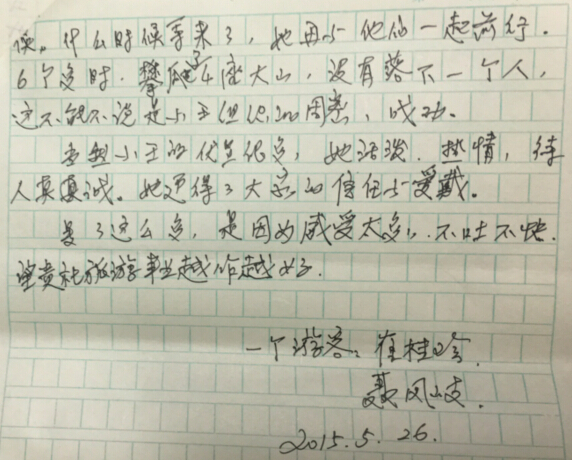 候。什么时候等来了,她再与他们一起前行.
6个多时.攀爬了4座大山,没有落下一个人,
这不能不说是小王组织的周密,成功.
当然小王的优点很多,她活泼.热情,待
人真诚。她还得了大家的信任与爱戴。
写了这么多,是因为感受太多,.不吐不快.
望贵社旅游事业越作越好.
一个游客:崔桂玲.
聂凤岐.
2015.5.26.